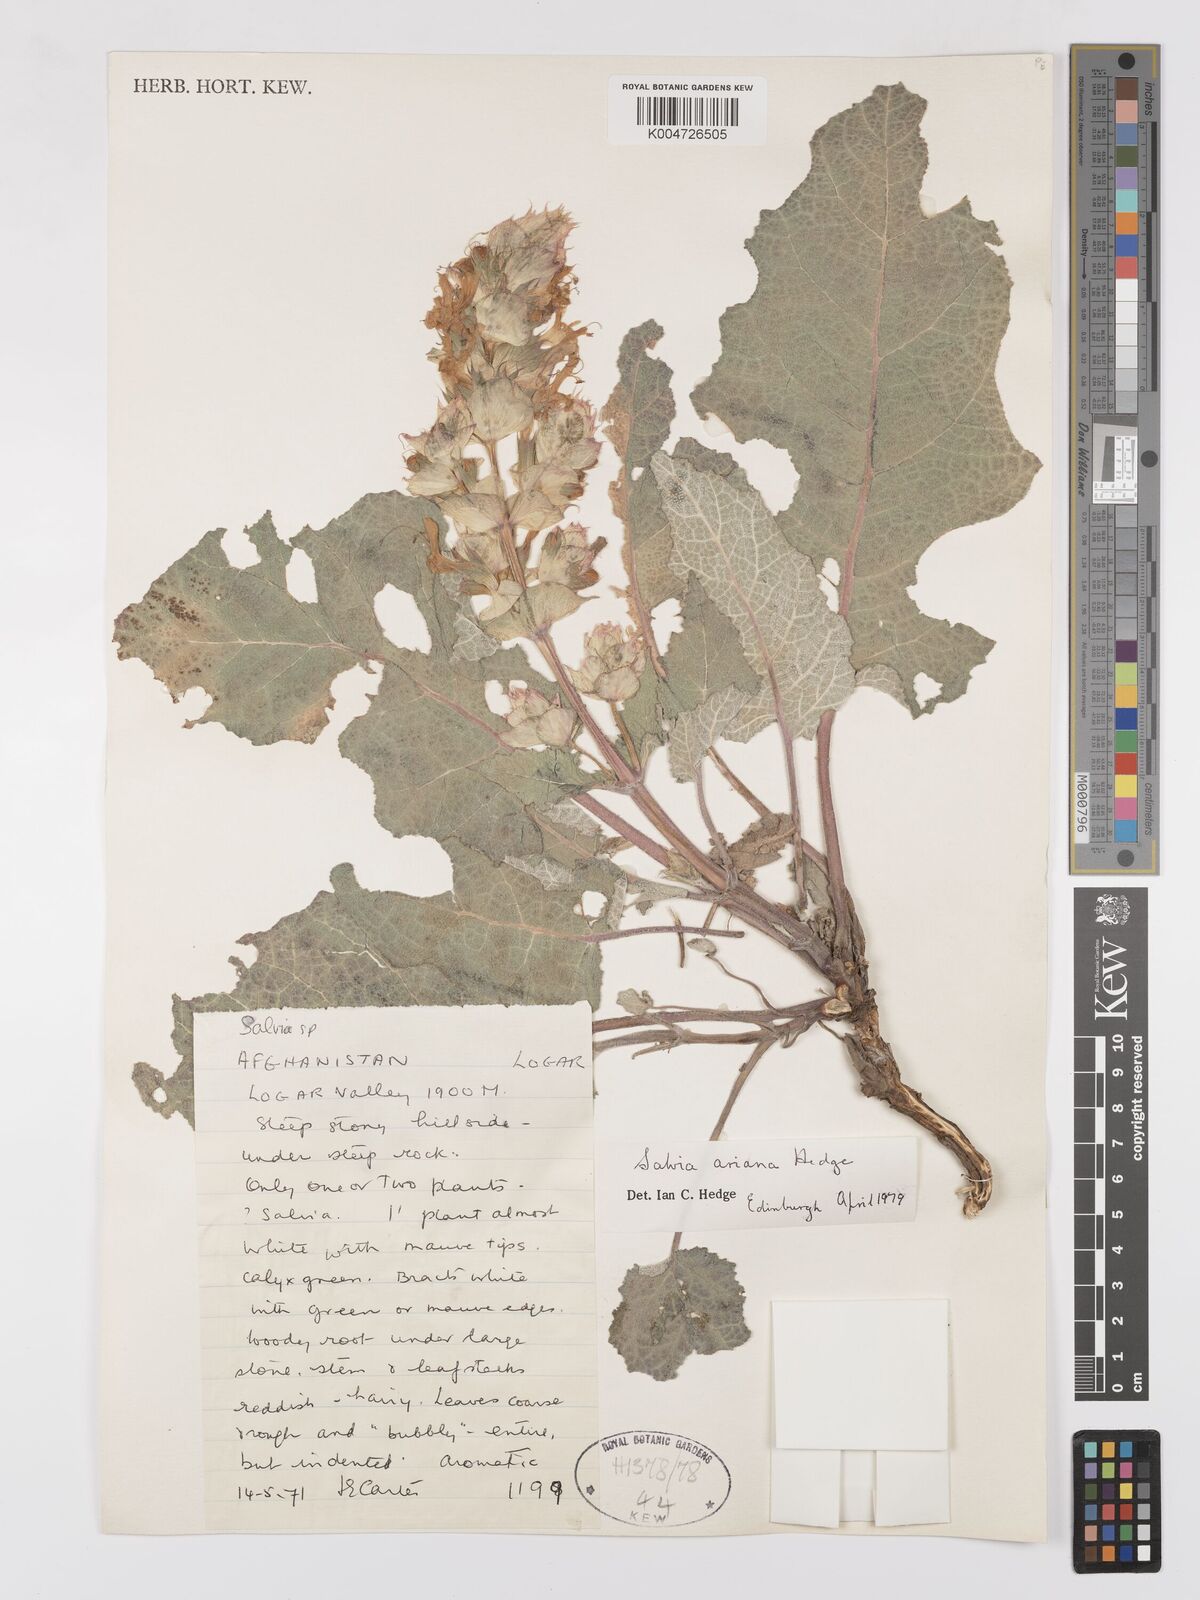 HERB. HORT. KEW.
ROYAL BOTANIC GARDENS KEW
K004726505
Salvia sp
AFGHANISTAN LOGAR
LOGAR Valley 1900 M.
Steep stony hillside -
under steep rock.
Only one or Two plants -
? Salvia. 1' plant almost
white with mauve tips.
calyx green. Bracts white
with green or mauve edges.
Woody root under large
stone. stem & leafstalks
reddish - hairy. Leaves coarse
& rough and "bubbly" - entire,
but indented. aromatic
14-5-71 Carter 1199
Salvia ariana Hedge
Det. Ian C. Hedge Edinburgh April 1979
ROYAL BOTANIC GARDENS
H1378/78
44
KEW
inches
centimeters
Density
Don Williams
M0000796
Royal Botanic Gardens
Kew
0 1 2 3 4 5 6 7 8 9 10
cm
copyright reserved